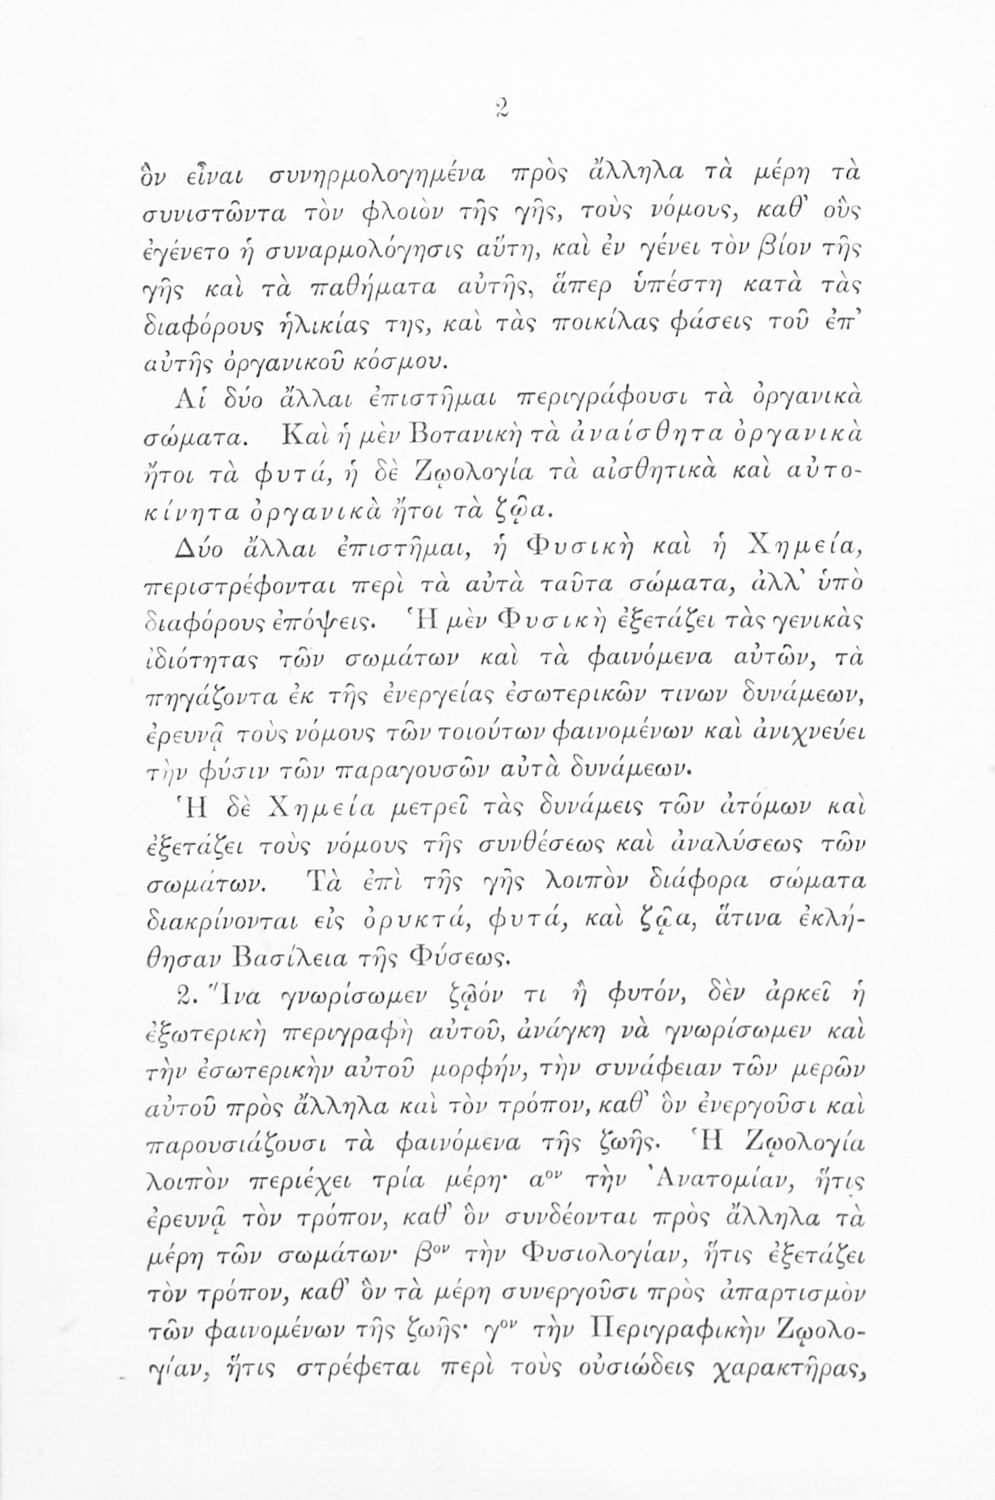 2
ὃν εἶναι συνηρμολογημένα πρὸς ἄλληλα τὰ μέρη τὰ
συνιστῶντα τὸν φλοιὸν τῆς γῆς, τοὺς νόμους, καθ' οὓς
ἐγένετο ἡ συναρμολόγησις αὕτη, καὶ ἐν γένει τὸν βίον τῆς
γῆς καὶ τὰ παθήματα αὐτῆς, ἅπερ ὑπέστη κατὰ τὰς
διαφόρους ἡλικίας της, καὶ τὰς ποικίλας φάσεις τοῦ ἐπ'
αὐτῆς ὀργανικοῦ κόσμου.
Αἱ δύο ἄλλαι ἐπιστῆμαι περιγράφουσι τὰ ὀργανικὰ
σώματα. Καὶ ἡ μὲν Βοτανικὴ τὰ ἀναίσθητα ὀργανικὰ
ἤτοι τὰ φυτά, ἡ δὲ Ζῳολογία τὰ αἰσθητικὰ καὶ αὐτο-
κίνητα ὀργανικὰ ἤτοι τὰ ζῷα.
Δύο ἄλλαι ἐπιστῆμαι, ἡ Φυσικὴ καὶ ἡ Χημεία,
περιστρέφονται περὶ τὰ αὐτὰ ταῦτα σώματα, ἀλλ' ὑπὸ
διαφόρους ἐπόψεις. Ἡ μὲν Φυσικὴ ἐξετάζει τὰς γενικὰς
ἰδιότητας τῶν σωμάτων καὶ τὰ φαινόμενα αὐτῶν, τὰ
πηγάζοντα ἐκ τῆς ἐνεργείας ἐσωτερικῶν τινων δυνάμεων,
ἐρευνᾷ τοὺς νόμους τῶν τοιούτων φαινομένων καὶ ἀνιχνεύει
τὴν φύσιν τῶν παραγουσῶν αὐτὰ δυνάμεων.
Ἡ δὲ Χημεία μετρεῖ τὰς δυνάμεις τῶν ἀτόμων καὶ
ἐξετάζει τοὺς νόμους τῆς συνθέσεως καὶ ἀναλύσεως τῶν
σωμάτων. Τὰ ἐπὶ τῆς γῆς λοιπὸν διάφορα σώματα
διακρίνονται εἰς ὀρυκτά, φυτά, καὶ ζῷα, ἅτινα ἐκλή-
θησαν Βασίλεια τῆς Φύσεως.
2. Ἵνα γνωρίσωμεν ζῷόν τι ἢ φυτόν, δὲν ἀρκεῖ ἡ
ἐξωτερικὴ περιγραφὴ αὐτοῦ, ἀνάγκη νὰ γνωρίσωμεν καὶ
τὴν ἐσωτερικὴν αὐτοῦ μορφήν, τὴν συνάφειαν τῶν μερῶν
αὐτοῦ πρὸς ἄλληλα καὶ τὸν τρόπον, καθ' ὃν ἐνεργοῦσι καὶ
παρουσιάζουσι τὰ φαινόμενα τῆς ζωῆς. Ἡ Ζῳολογία
λοιπὸν περιέχει τρία μέρη· αον τὴν Ἀνατομίαν, ἥτις
ἐρευνᾷ τὸν τρόπον, καθ' ὃν συνδέονται πρὸς ἄλληλα τὰ
μέρη τῶν σωμάτων· βον τὴν Φυσιολογίαν, ἥτις ἐξετάζει
τὸν τρόπον, καθ' ὃν τὰ μέρη συνεργοῦσι πρὸς ἀπαρτισμὸν
τῶν φαινομένων τῆς ζωῆς· γον τὴν Περιγραφικὴν Ζῳολο-
γίαν, ἥτις στρέφεται περὶ τοὺς οὐσιώδεις χαρακτῆρας,